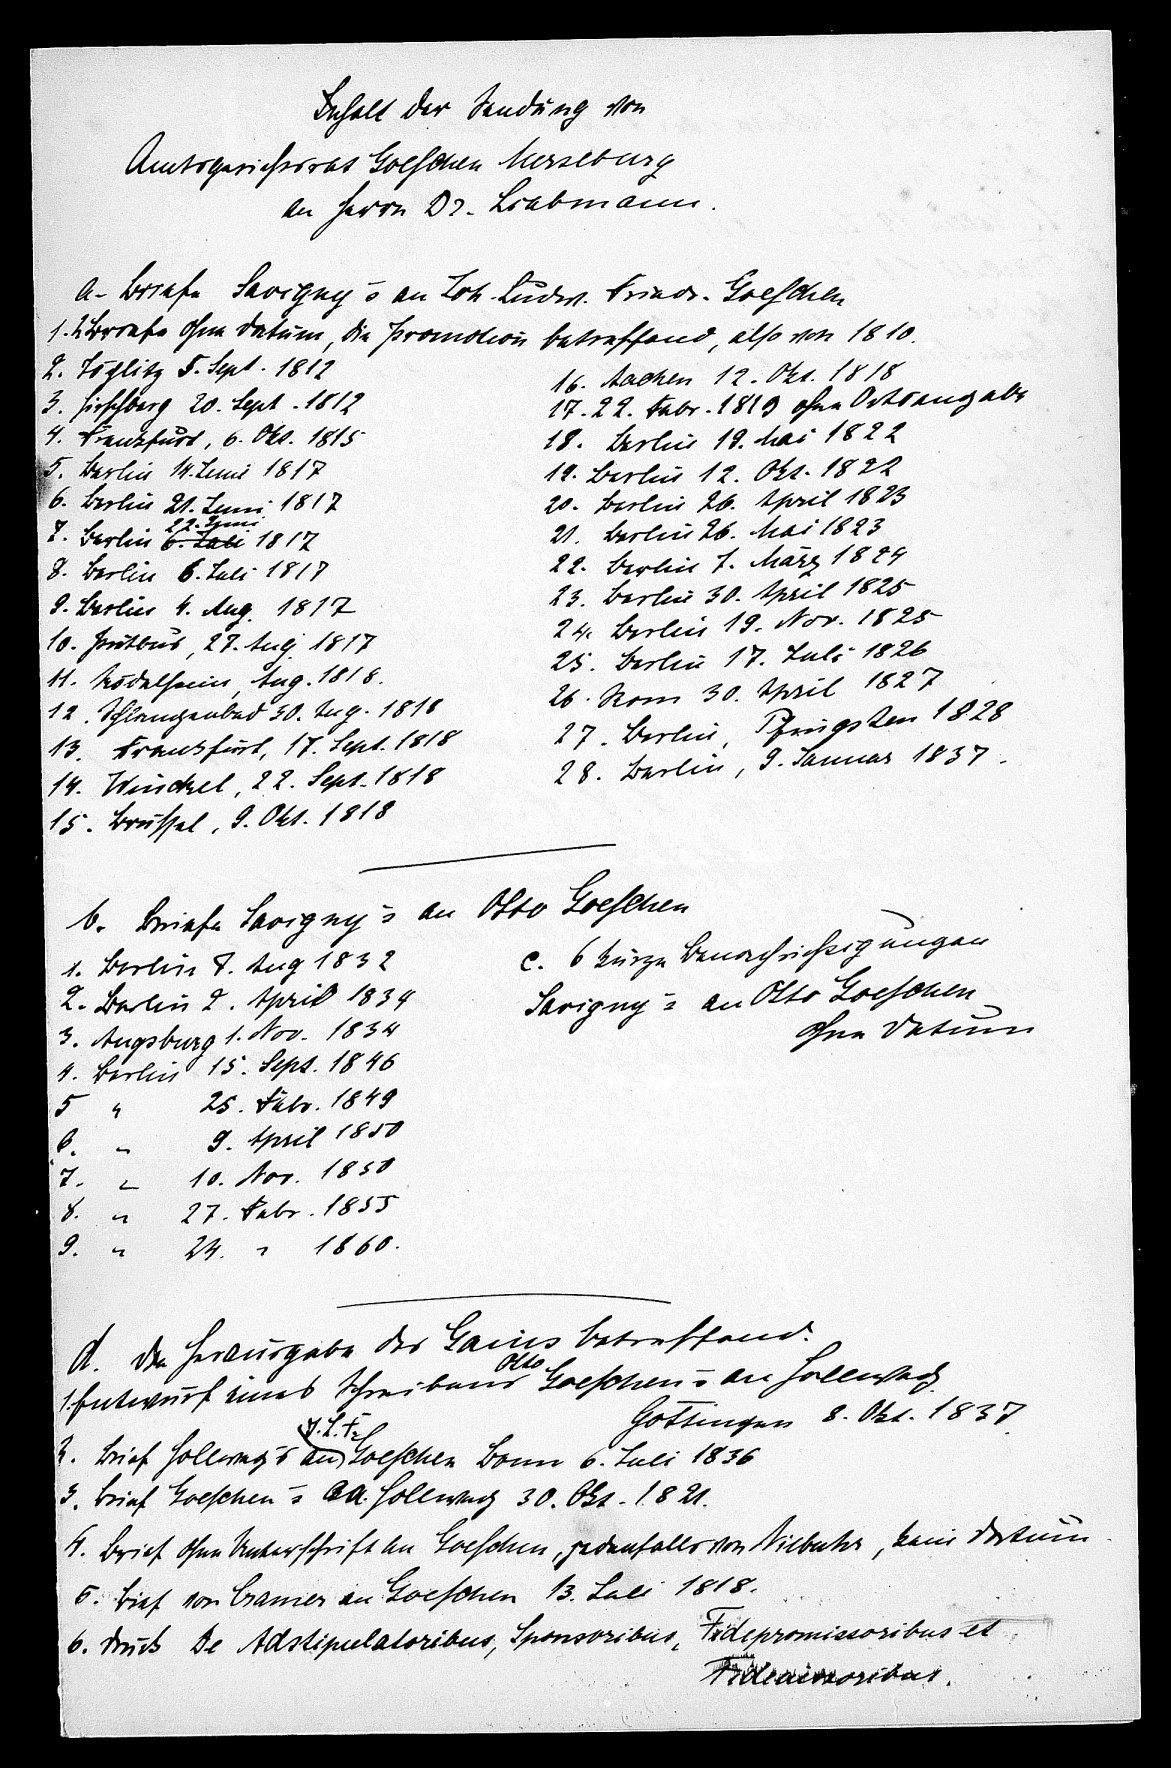 Inhalt der Sendung von
Amtsgerichtsrat Goeschen Merseburg
an Herrn Dr. Liebmann.
a. Briefe Savigny's an Joh. Ludw. Friedr. Goeschen
1. 2 Briefe ohne Datum, die Promotion betreffend, also von 1810.
2. Töplitz 5. Sept. 1812
3. Hirschberg 20. Sept. 1812
4. Frankfurt, 6. Okt. 1815
5. Berlin 14. Juni 1817
6. Berlin 21. Juni 1817
22. Juni
7. Berlin 6. Juli 1817
8. Berlin 6. Juli 1817
9. Berlin 4. Aug. 1817
10. Putbus, 27. Aug 1817
11. Rödelheim, Aug. 1818.
12. Schlangenbad 30. Aug. 1818
13. Frankfurt, 17. Sept. 1818
14. Winckel, 22. Sept. 1818
15. Brüssel, 9. Okt. 1818
16. Aachen 12. Okt. 1818
17. 22. Febr. 1819 ohne Ortsangabe
18. Berlin 19. Mai 1822
19. Berlin 12. Okt. 1822
20. Berlin 26. April 1823
21. Berlin 26. Mai 1823
22. Berlin 7. März 1824
23. Berlin 30. April 1825
24. Berlin 19. Nov. 1825
25. Berlin 17. Juli 1826
26. Rom 30. April 1827
27. Berlin, Pfingsten 1828
28. Berlin, 9. Januar 1837.
b. Briefe Savigny's an Otto Goeschen
1. Berlin 8. Aug 1832
2. Berlin 2. April 1834
3. Augsburg 1. Nov. 1834
4. Berlin 15. Sept. 1846
5 " 25. Febr. 1849
6. " 9. April 1850
7. " 10. Nov. 1850
8. " 27. Febr. 1855
9. " 24. " 1860.
c. 6 kurze Benachrichtigungen
Savigny's an Otto Goeschen
ohne Datum
d. Die Herausgabe des Gaius betreffend.
Otto
1. Entwurf eines Schreibens Goeschen's an Hollweg
Göttingen 8. Okt. 1837.
J. L. F.
2. Brief Hollweg's an Goeschen Bonn 6. Juli 1836
3. Brief Goeschen's an Hollweg 30. Okt. 1821.
4. Brief ohne Unterschrift an Goeschen, jedenfalls von Niebuhr, kein Datum.
5. Brief von Cramer an Goeschen 13. Juli 1818.
6. Druck De Adstipulatoribus, Sponsoribus, Fidepromissoribus et
Fideiussoribus.